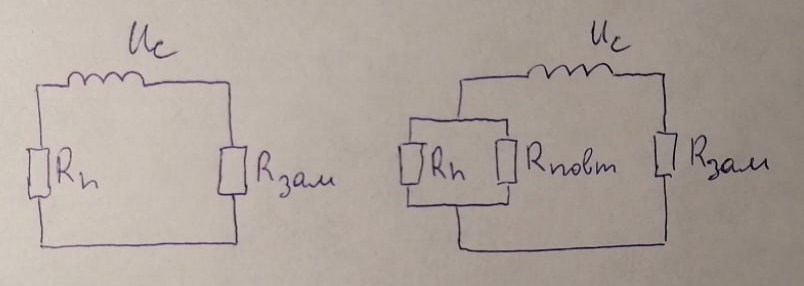 Uc
Rп
Rзам
Uc
Rп
Rповт
Rзам